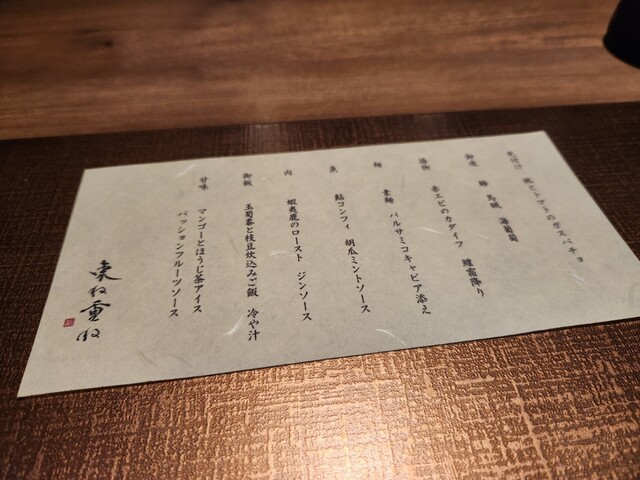 先付け 桃とトマトのガスパチョ
御造 鯵 馬糞 海葡萄
揚物 赤エビのカダイフ 鱧霜降り
麺 素麺 バルサミコキャビア添え
魚 鮎コンフィ 胡瓜ミントソース
肉 蝦夷鹿のロースト ジンソース
御飯 玉蜀黍と枝豆炊込みご飯 冷や汁
甘味 マンゴーとほうじ茶アイス
パッションフルーツソース